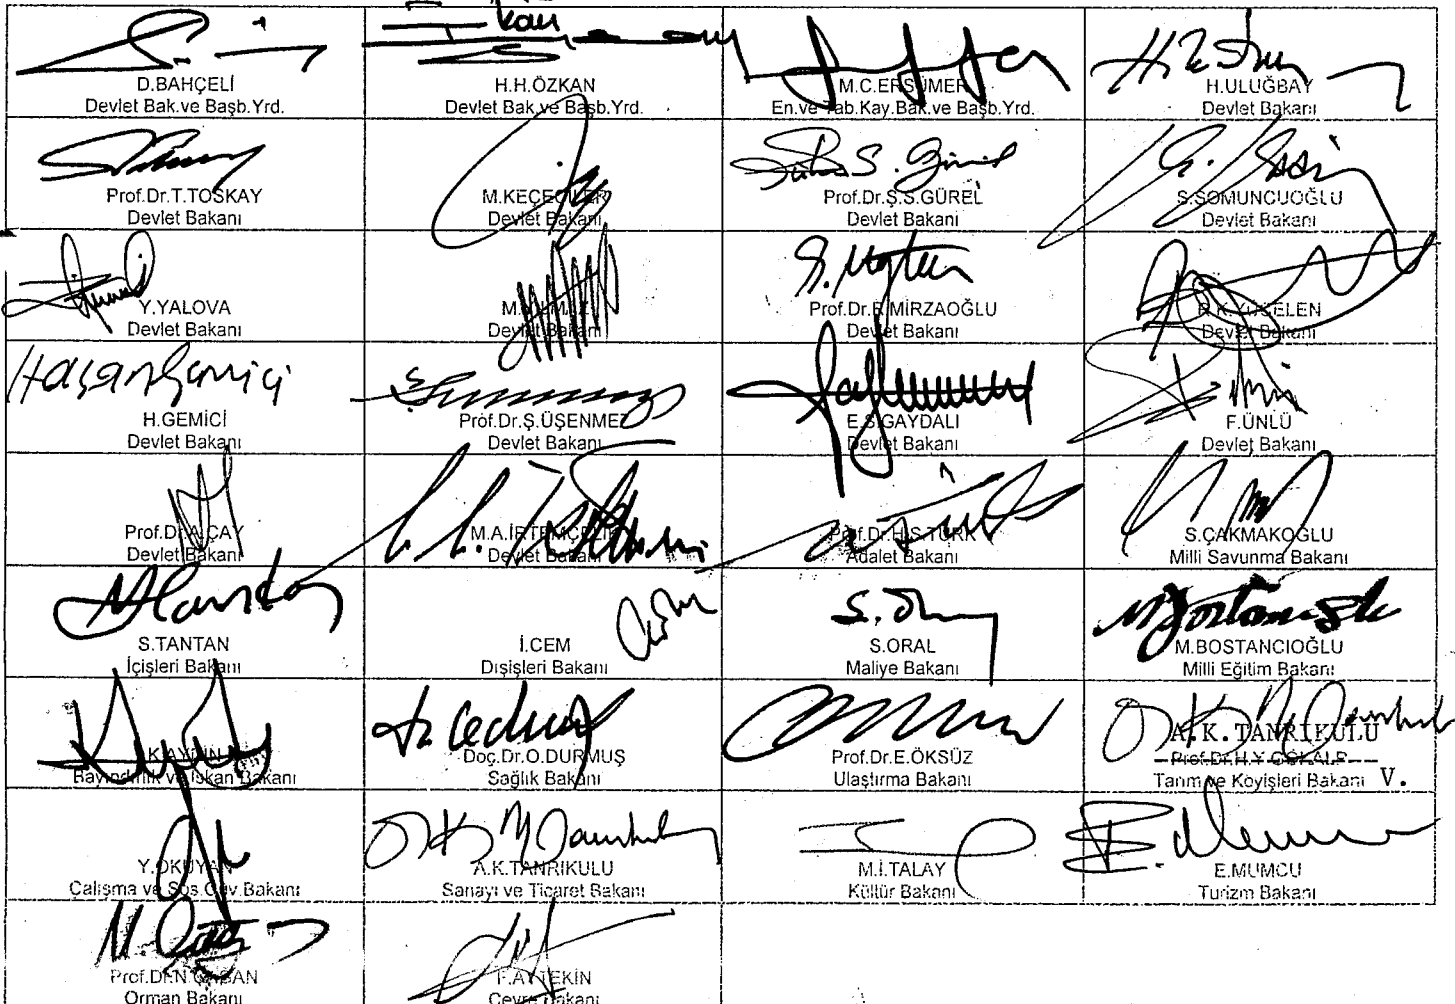 D.BAHÇELİ
Devlet Bak.ve Başb.Yrd.
H.H.ÖZKAN
Devlet Bak.ve Başb.Yrd.
M.C.ERSÜMER
En.ve Tab.Kay.Bak.ve Başb.Yrd.
H.ULUĞBAY
Devlet Bakanı
Prof.Dr.T.TOSKAY
Devlet Bakanı
M.KEÇECİLER
Devlet Bakanı
Prof.Dr.Ş.S.GÜREL
Devlet Bakanı
S.SOMUNCUOĞLU
Devlet Bakanı
Y.YALOVA
Devlet Bakanı
Devlet Bakanı
Prof.Dr.R.MİRZAOĞLU
Devlet Bakanı
R.K.YÜCELEN
Devlet Bakanı
Hasan Gemici
H.GEMİCİ
Devlet Bakanı
Prof.Dr.Ş.ÜŞENMEZ
Devlet Bakanı
E.S.GAYDALI
Devlet Bakanı
F.ÜNLÜ
Devlet Bakanı
Prof.Dr.A.ÇAY
Devlet Bakanı
M.A.İRTEMÇELİK
Devlet Bakanı
Prof.Dr.H.S.TÜRK
Adalet Bakanı
S.ÇAKMAKOĞLU
Milli Savunma Bakanı
S.TANTAN
İçişleri Bakanı
İ.CEM
Dışişleri Bakanı
S.ORAL
Maliye Bakanı
M.BOSTANCIOĞLU
Milli Eğitim Bakanı
K.AYDIN
Bayındırlık ve İskan Bakanı
Doç.Dr.O.DURMUŞ
Sağlık Bakanı
Prof.Dr.E.ÖKSÜZ
Ulaştırma Bakanı
A.K.TANRIKULU
Prof.Dr.H.Y.GÖKALP
Tarım ve Köyişleri Bakanı V.
Y.OKUYAN
Çalışma ve Sos.Güv.Bakanı
A.K.TANRIKULU
Sanayi ve Ticaret Bakanı
M.İ.TALAY
Kültür Bakanı
E.MUMCU
Turizm Bakanı
Prof.Dr.N.ÇAĞAN
Orman Bakanı
F.AYTEKİN
Çevre Bakanı